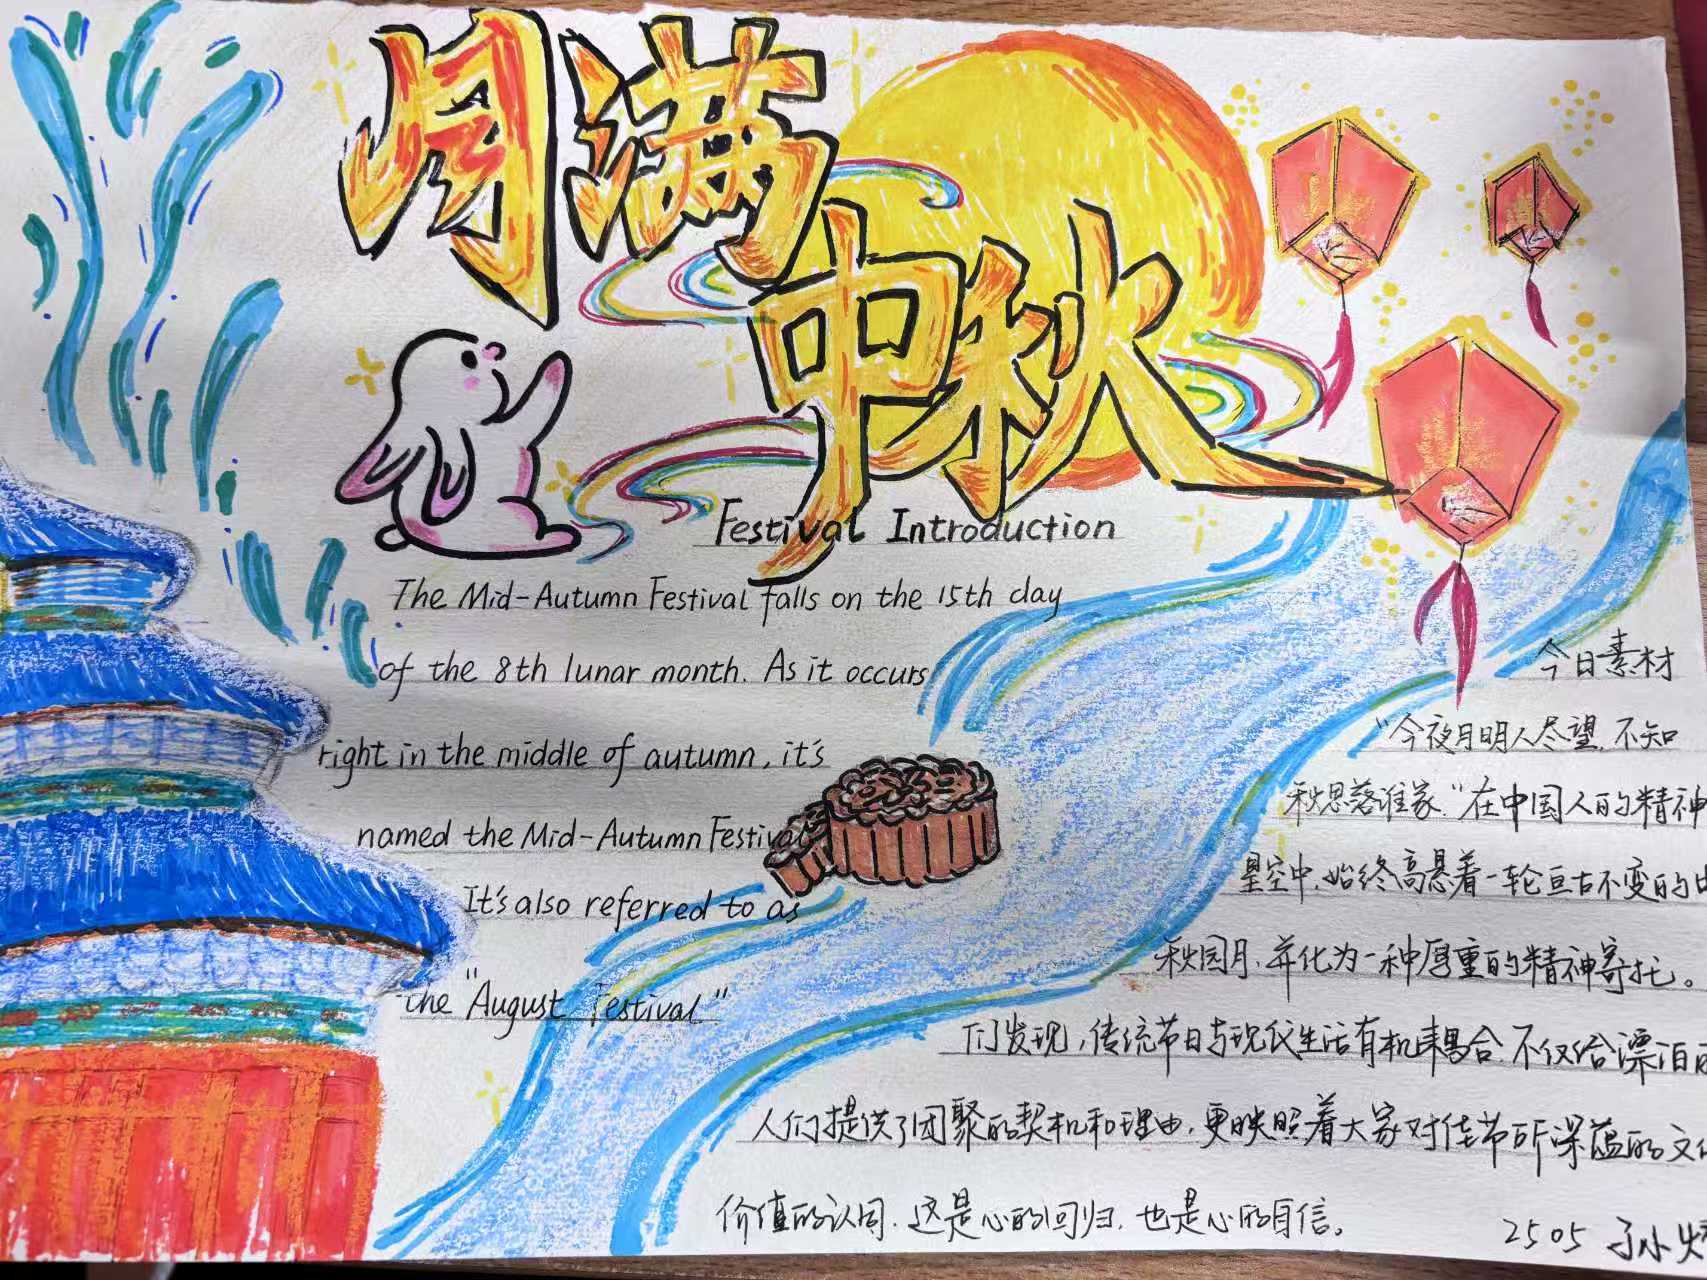 月满
中秋
Festival Introduction
The Mid-Autumn Festival falls on the 15th day
of the 8th lunar month. As it occurs
right in the middle of autumn, it's
named the Mid-Autumn Festival
It's also referred to as
the "August Festival"
今日素材
"今夜月明人尽望,不知
秋思落谁家."在中国人的精神
星空中,始终高悬着一轮亘古不变的中
秋圆月,并化为一种厚重的精神寄托。
们发现,传统节日与现代生活有机耦合,不仅给漂泊
人们提供了团聚的契机和理由,更映照着大家对佳节所深蕴的文化
价值的认同,这是心的回归,也是心的自信。
2505 孙